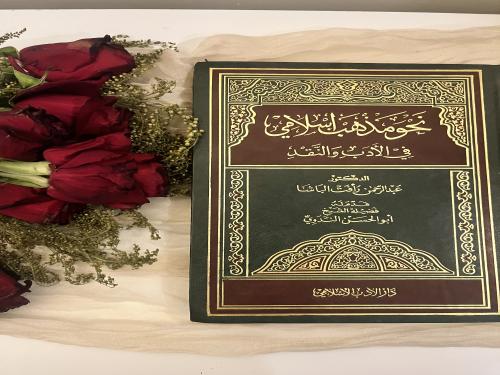 نحو مذهب إسلامي
في الأدب والنقد
الدكتور
عبد الرحمن رأفت الباشا
قدم له
فضيلة الشيخ
أبو الحسن الندوي
دار الأدب الإسلامي